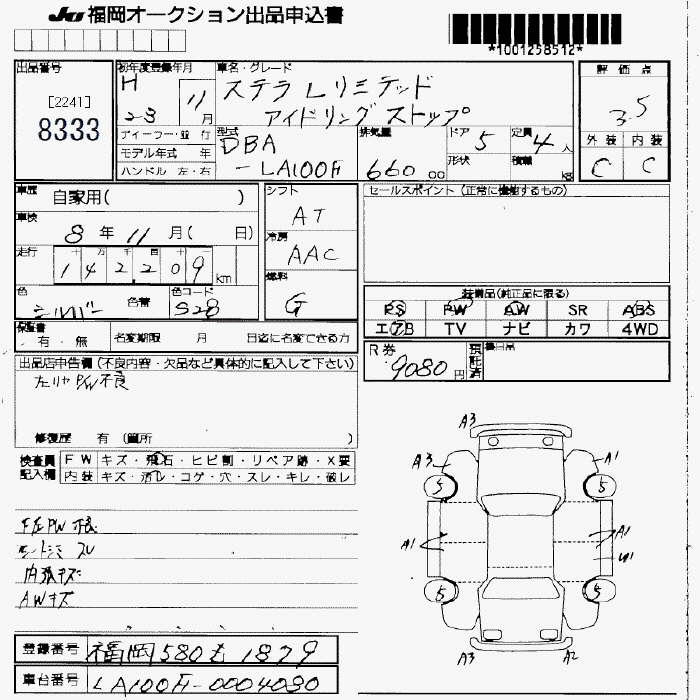 JU 福岡オークション出品申込書
*1001258512*
出品番号
[2241]
8333
初年度登録年月
H
23 11月
車名・グレード
ステラ Lリミテッド
アイドリングストップ
評価点
3.5
外装 内装
C C
ディーラー・並行
モデル年式 年
ハンドル 左・右
型式
DBA
-LA100F
排気量
660 00
ドア 5
形状
定員 4人
積載 kg
車歴
自家用( )
車検
8年11月( 日)
走行
十万千百十
142209 km
色
シルバー 色替
色コード
S28
シフト
AT
冷房
AAC
燃料
G
セールスポイント(正常に機能するもの)
装備品(純正品に限る)
PS PW AW SR ABS
エアB TV ナビ カワ 4WD
保証書
有・無
名変期限 月 日迄に名変できる方
R券
9080円
預託済
出品店申告欄(不良内容・欠品など具体的に記入して下さい)
左リヤP/W不良
修復歴 有(箇所 )
検査員記入欄
FW キズ・飛石・ヒビ割・リペア跡・X要
内装 キズ・汚レ・コゲ・穴・スレ・キレ・破レ
PW 不良
スレ
内張キズ
AWキズ
A3
A3 A1
5 5
A1 A1
U1
5 5
A3 A2
登録番号 福岡580 も 1879
車台番号 LA100F-0004030